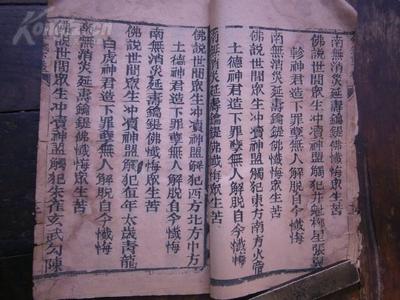 南無消災延壽鑰鍉佛懺悔眾生苦
佛說世間眾生冲瀆神盟觸犯井鬼柳星張翼
軫神君造下罪孽無人解脫自今懺悔
南無消災延壽鑰鍉佛懺悔眾生苦
佛說世間眾生冲瀆神盟觸犯東方南方火帝
土德神君造下罪孽無人解脫自今懺悔
南無消災延壽鑰鍉佛懺悔眾生苦
佛說世間眾生冲瀆神盟觸犯西方北方中方
土德神君造下罪孽無人解脫自今懺悔
南無消災延壽鑰鍉佛懺悔眾生苦
佛說世間眾生冲瀆神盟觸犯值年太歲青龍
白虎神君造下罪孽無人解脫自今懺悔
南無消災延壽鑰鍉佛懺悔眾生苦
佛說世間眾生冲瀆神盟觸犯朱雀玄武勾陳